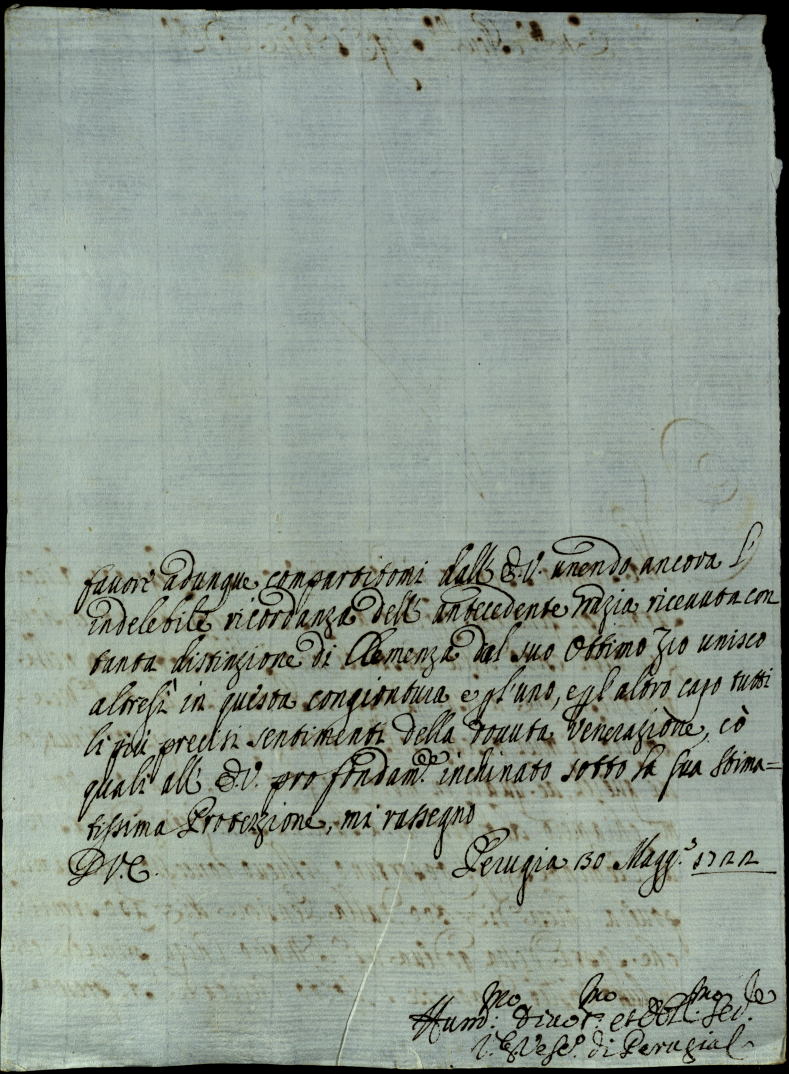 favori adunque compartitomi dall' E.V. unendo ancora l'
indelebile ricordanza dell' antecedente grazia ricevuta con
tanta distinzione di Clemenza dal suo Ottimo Zio unisco
altresì in questa congiontura e pl'uno, e pl'altro capo tutti
li più precisi sentimenti della dovuta Venerazione, cò
quali all' E.V. profondam.te inchinato sotto la sua Stima=
tissima Protezzione, mi rassegno
D.V.E.
Perugia 30 Magg.o 1722
Hum.mo Divot.mo et Obl.mo Ser.re
V.E Vesc.o di Perugia